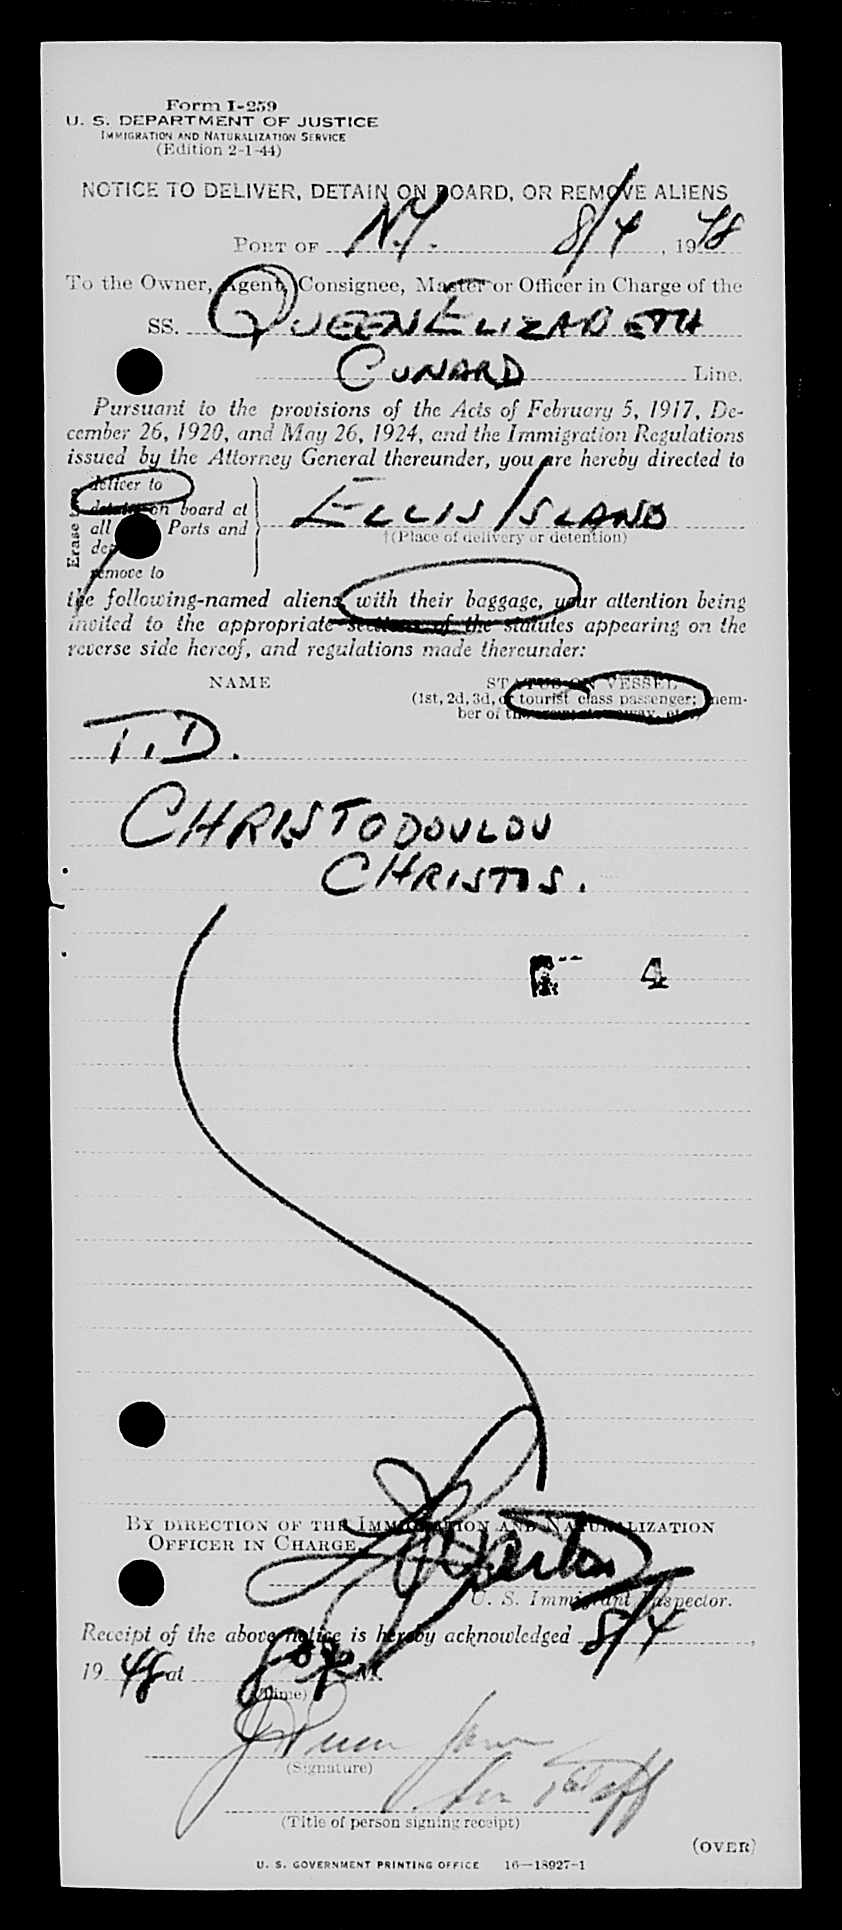 Form I-259
U. S. DEPARTMENT OF JUSTICE
IMMIGRATION AND NATURALIZATION SERVICE
(Edition 2-1-44)
NOTICE TO DELIVER, DETAIN ON BOARD, OR REMOVE ALIENS
PORT OF N.Y. 8/4, 1948
To the Owner, Agent, Consignee, Master or Officer in Charge of the
SS. QUEEN ELIZABETH
CUNARD Line.
Pursuant to the provisions of the Acts of February 5, 1917, De-
cember 26, 1920, and May 26, 1924, and the Immigration Regulations
issued by the Attorney General thereunder, you are hereby directed to
Erase
deliver to
detain on board at
all Ports and
remove to
ELLIS ISLAND
†(Place of delivery or detention)
the following-named aliens, with their baggage, your attention being
invited to the appropriate sections of the statutes appearing on the
reverse side hereof, and regulations made thereunder:
NAME STATUS ON VESSEL
(1st, 2d, 3d, or tourist class passenger; mem-
ber of the
T.D.
CHRISTODOULOU
CHRISTOS.
4
BY DIRECTION OF THE IMMIGRATION AND NATURALIZATION
OFFICER IN CHARGE.
U. S. Immigrant Inspector.
Receipt of the above notice is hereby acknowledged 8/4,
1948 at M.
(Time)
(Signature)
(Title of person signing receipt)
(OVER)
U. S. GOVERNMENT PRINTING OFFICE 16—18927-1